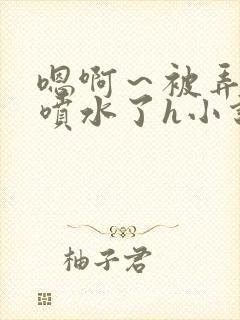 嗯啊～被弄
喷水了h小
柚子君